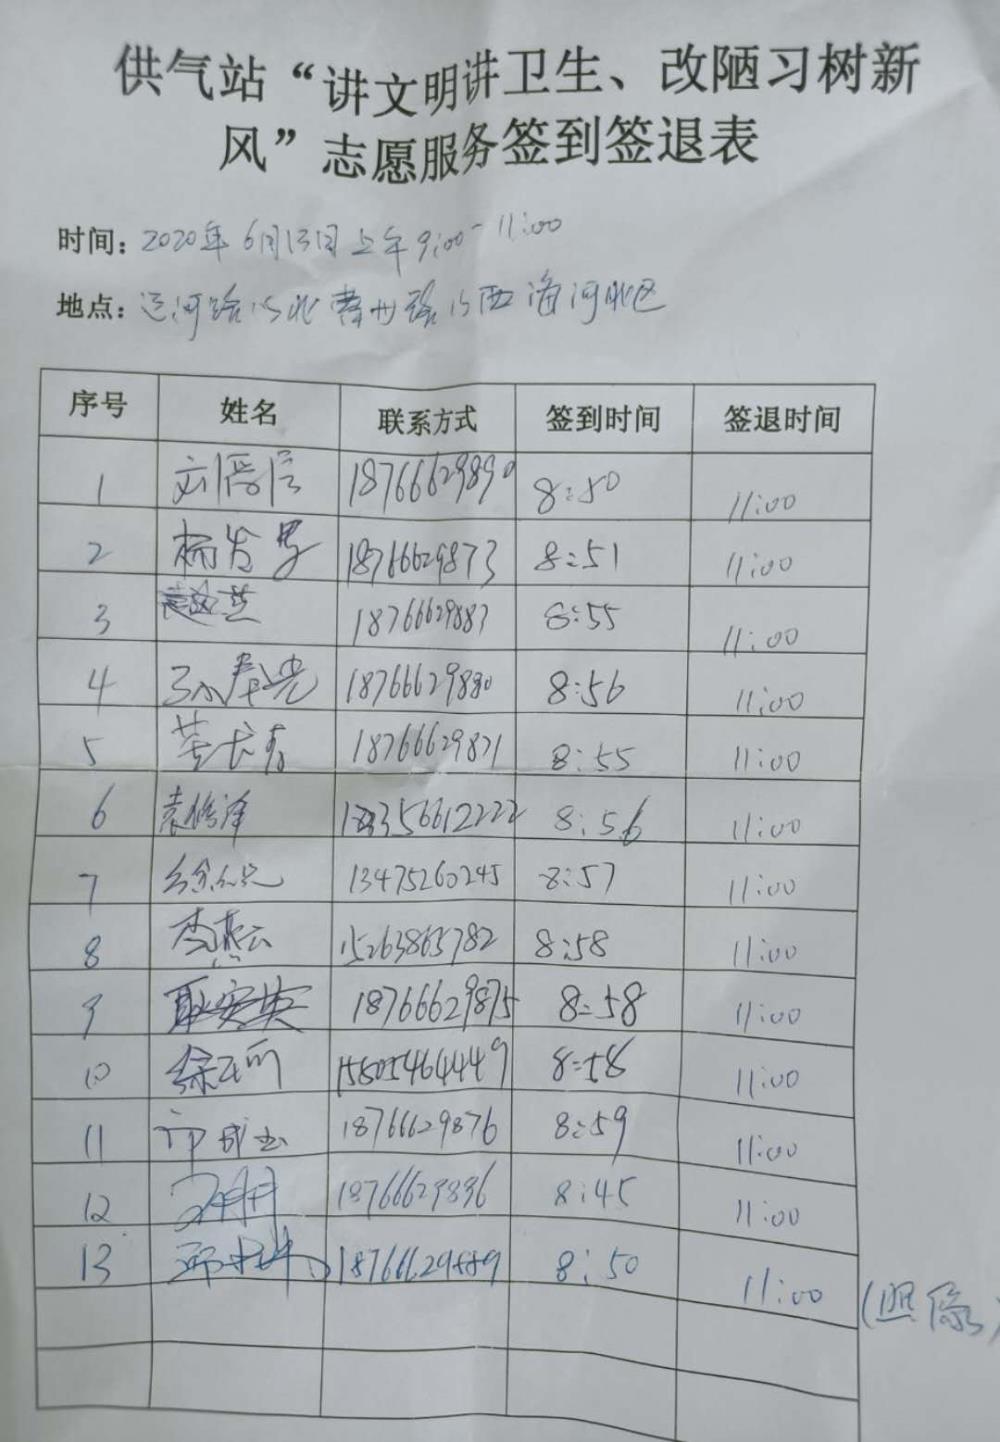 供气站“讲文明讲卫生、改陋习树新
风”志愿服务签到签退表
时间：2020年6月13日上午9:00-11:00
地点：运河路以北 路以西海河北区
序号 姓名 联系方式 签到时间 签退时间
1 18766629890 8:50 11:00
2 18766629873 8:51 11:00
3 18766629883 8:55 11:00
4 孙奉先 18766629880 8:56 11:00
5 18766629871 8:55 11:00
6 袁修泽 8:56 11:00
7 13475260245 8:57 11:00
8 李燕云 15263865782 8:58 11:00
9 耿安英 18766629875 8:58 11:00
10 15505464449 8:58 11:00
11 18766629876 8:59 11:00
12 18766629896 8:45 11:00
13 18766629889 8:50 11:00 (照像)